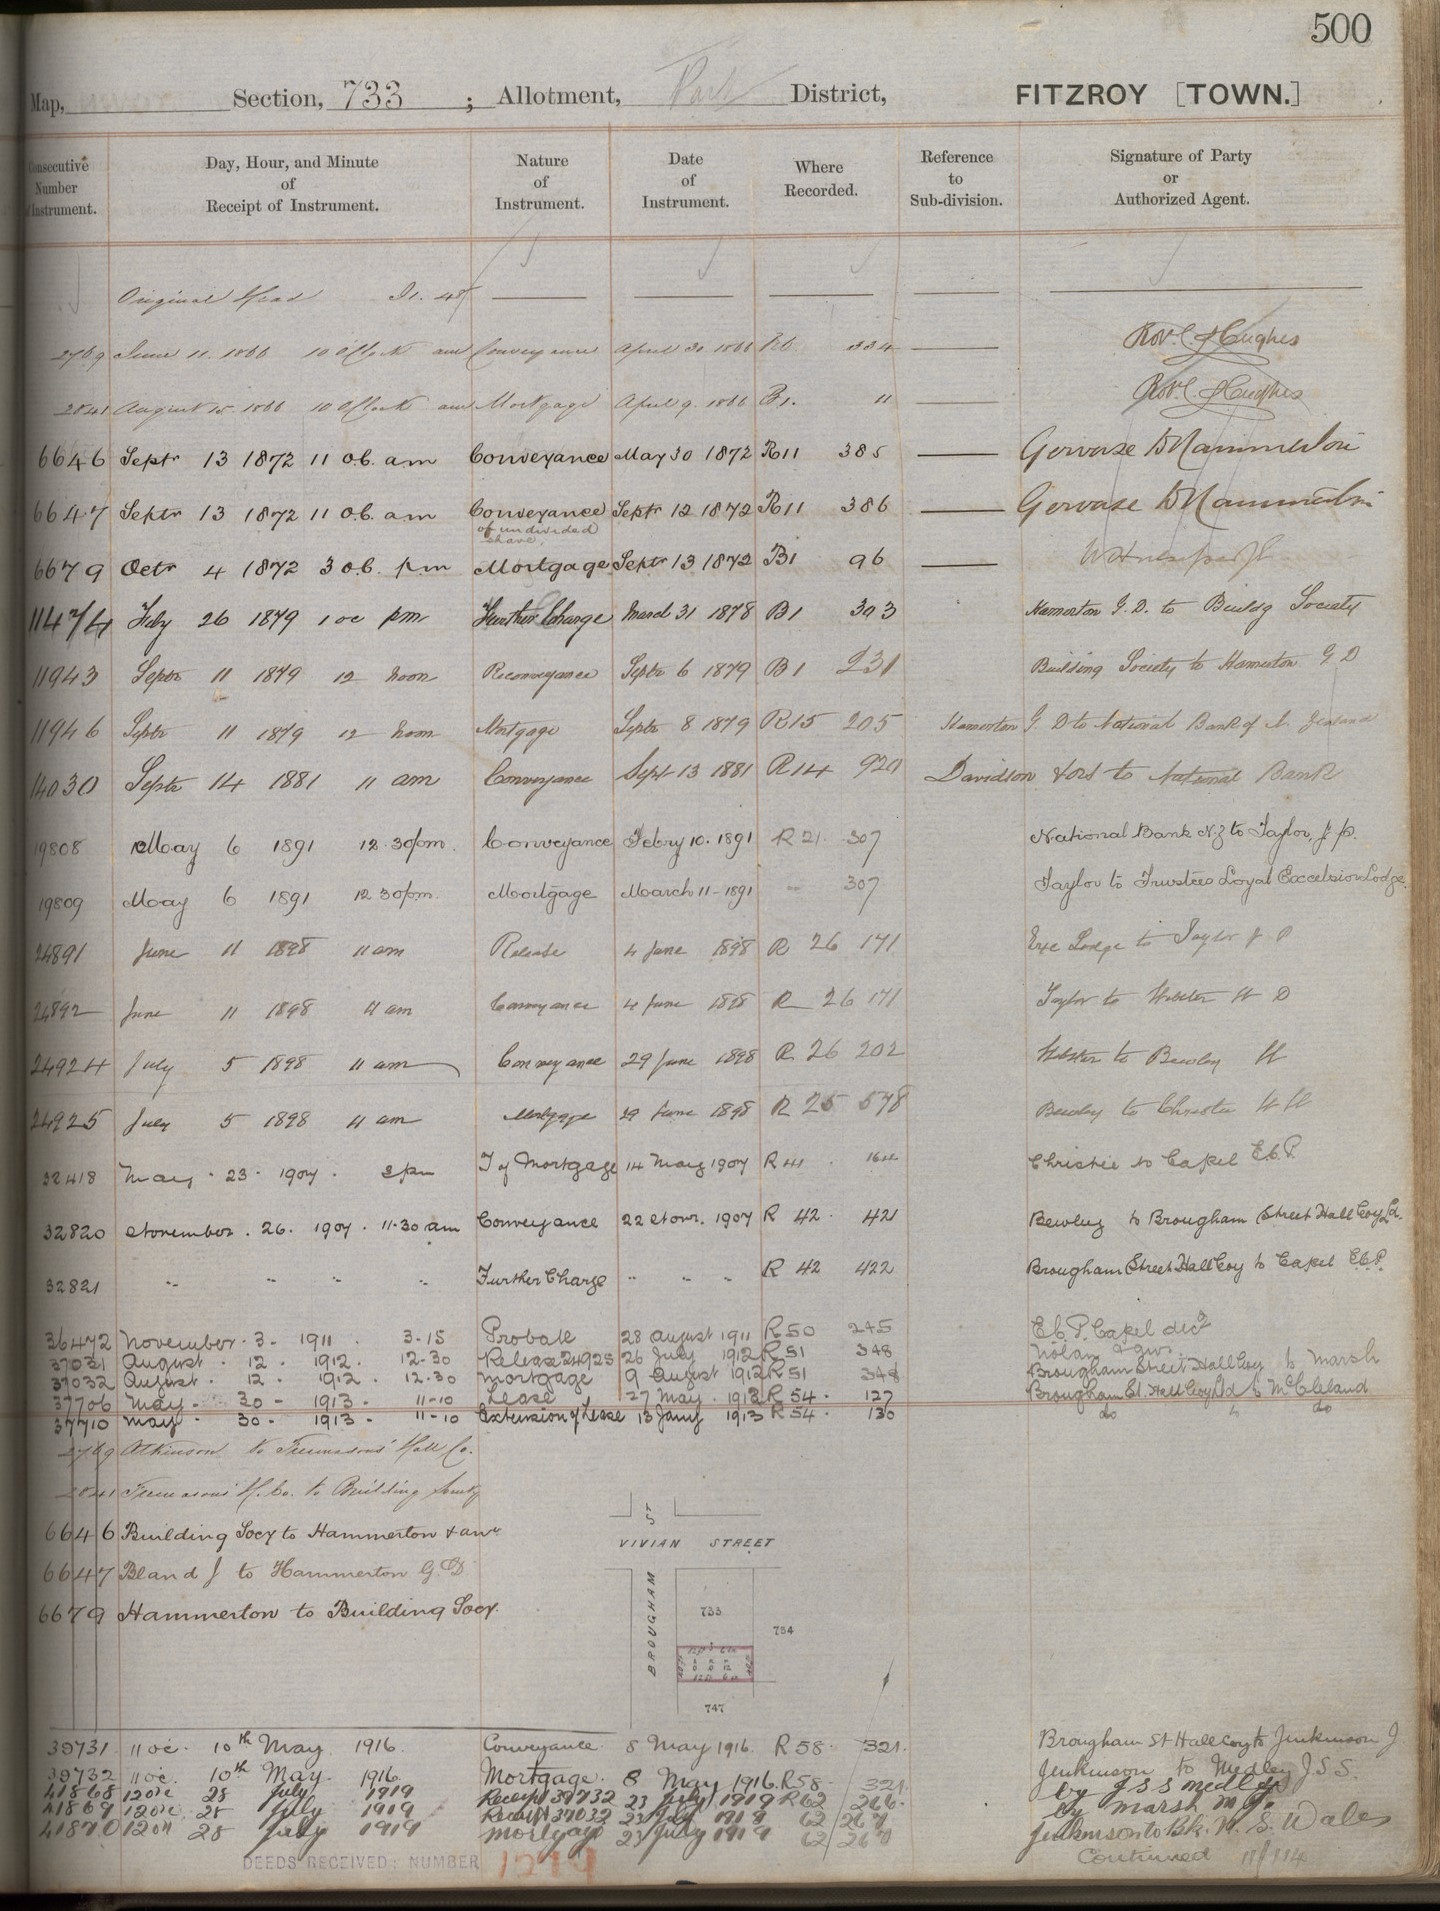 500
Map, Section, 733 ; Allotment, Part District, FITZROY [TOWN.]
Consecutive Number of Instrument. Day, Hour, and Minute of Receipt of Instrument. Nature of Instrument. Date of Instrument. Where Recorded. Reference to Sub-division. Signature of Party or Authorized Agent.
Original Head
2769 June 11. 1866 10 OClock am Conveyance April 30 1866 334 Hughes
2841 August 15. 1866 10 OClock am Mortgage April 9. 1866 B1. 11 Hughes
6646 Septr 13 1872 11 o.c. am Conveyance May 30 1872 R11 385 Gervase D Hammerton
6647 Septr 13 1872 11 o.c. am Conveyance of undivided share. Septr 12 1872 R11 386 Gervase D Hammerton
6679 Octr 4 1872 3 o.c. pm Mortgage Septr 13 1872 B1 96
11474 July 26 1879 1 oc pm Further Charge March 31 1878 B1 303 Hamerton G. D. to Buildg Society
11943 Septr 11 1879 12 noon Reconveyance Septr 6 1879 B1 231 Building Society to Hamerton G D
11946 Septr 11 1879 12 noon Mortgage Septr 8 1879 R15 205 Hamerton G. D to National Bank of N. Zealand
14030 Septr 14 1881 11 am Conveyance Sept 13 1881 R14 920 Davidson & ors to National Bank
19808 May 6 1891 12.30pm. Conveyance Febry 10. 1891 R21. 307 National Bank N.Z to Taylor, J. P.
19809 May 6 1891 12 30pm. Mortgage March 11 - 1891 " 307 Taylor to Trustees Loyal Excelsior Lodge.
24891 June 11 1898 11 am Release 4 June 1898 R 26 171 Exe Lodge to Taylor J P
24892 June 11 1898 11 am Conveyance 4 June 1898 R 26 171 Taylor to Webster W D
24924 July 5 1898 11 am Conveyance 29 June 1898 R 26 202 Webster to Bewley W
24925 July 5 1898 11 am Mortgage 29 June 1898 R 25 578 Bewley to Christie W W
32418 May . 23 . 1907 . 2 pm T of Mortgage 14 May 1907 R 41 . 164 Christie to Capel E.C.P.
32820 November . 26. 1907 . 11.30 am Conveyance 22 Novr. 1907 R 42 . 421 Bewley to Brougham Street Hall Coy Ld.
32821 " " " " Further Charge " " " R 42 422 Brougham Street Hall Coy to Capel E.C.P.
36472 November . 3 - 1911 . 3-15 Probate 28 August 1911 R50 245 E.C.P. Capel decd
37031 August . 12 . 1912 . 12-30 Release 24925 26 July 1912 R51 348 Nolan & anr.
37032 August . 12 . 1912 . 12.30 Mortgage 9 August 1912 R51 348 Brougham Street Hall Coy to Marsh
37706 May - 30 - 1913 - 11-10 Lease 27 May . 1913 R 54 . 127 Brougham St. Hall Coy Ld to McCleland
37710 May - 30 - 1913 - 11-10 Extension of Lease 13 Jany 1913 R 54 . 130 do " do
2769 Atkinson to Freemasons' Hall Co.
2841 Freemasons' H. Co. to Building Society
6646 Building Socy to Hammerton & anr.
6647 Bland J to Hammerton G.D
6679 Hammerton to Building Socy.
ST
VIVIAN STREET
BROUGHAM
733
734
747
39731 11 oc. 10th May 1916. Conveyance. 8 May 1916. R 58 . 321. Brougham St Hall Coy to Jenkinson J
39732 11 oc. 10th May. 1916. Mortgage. 8 May 1916. R58 321. Jenkinson to Medley J.S.S.
41868 12 oc 28 July 1919 Receipt 39732 23 July 1919 R62 266. by J S S Medley
41869 12 oc. 28 July 1919 Receipt 37032 23 July 1919 62 267 by Marsh
41870 12 oc 28 July 1919 Mortgage 23 July 1919 62 267 Jenkinson to Bk. N. S. Wales
DEEDS RECEIVED: NUMBER
Continued